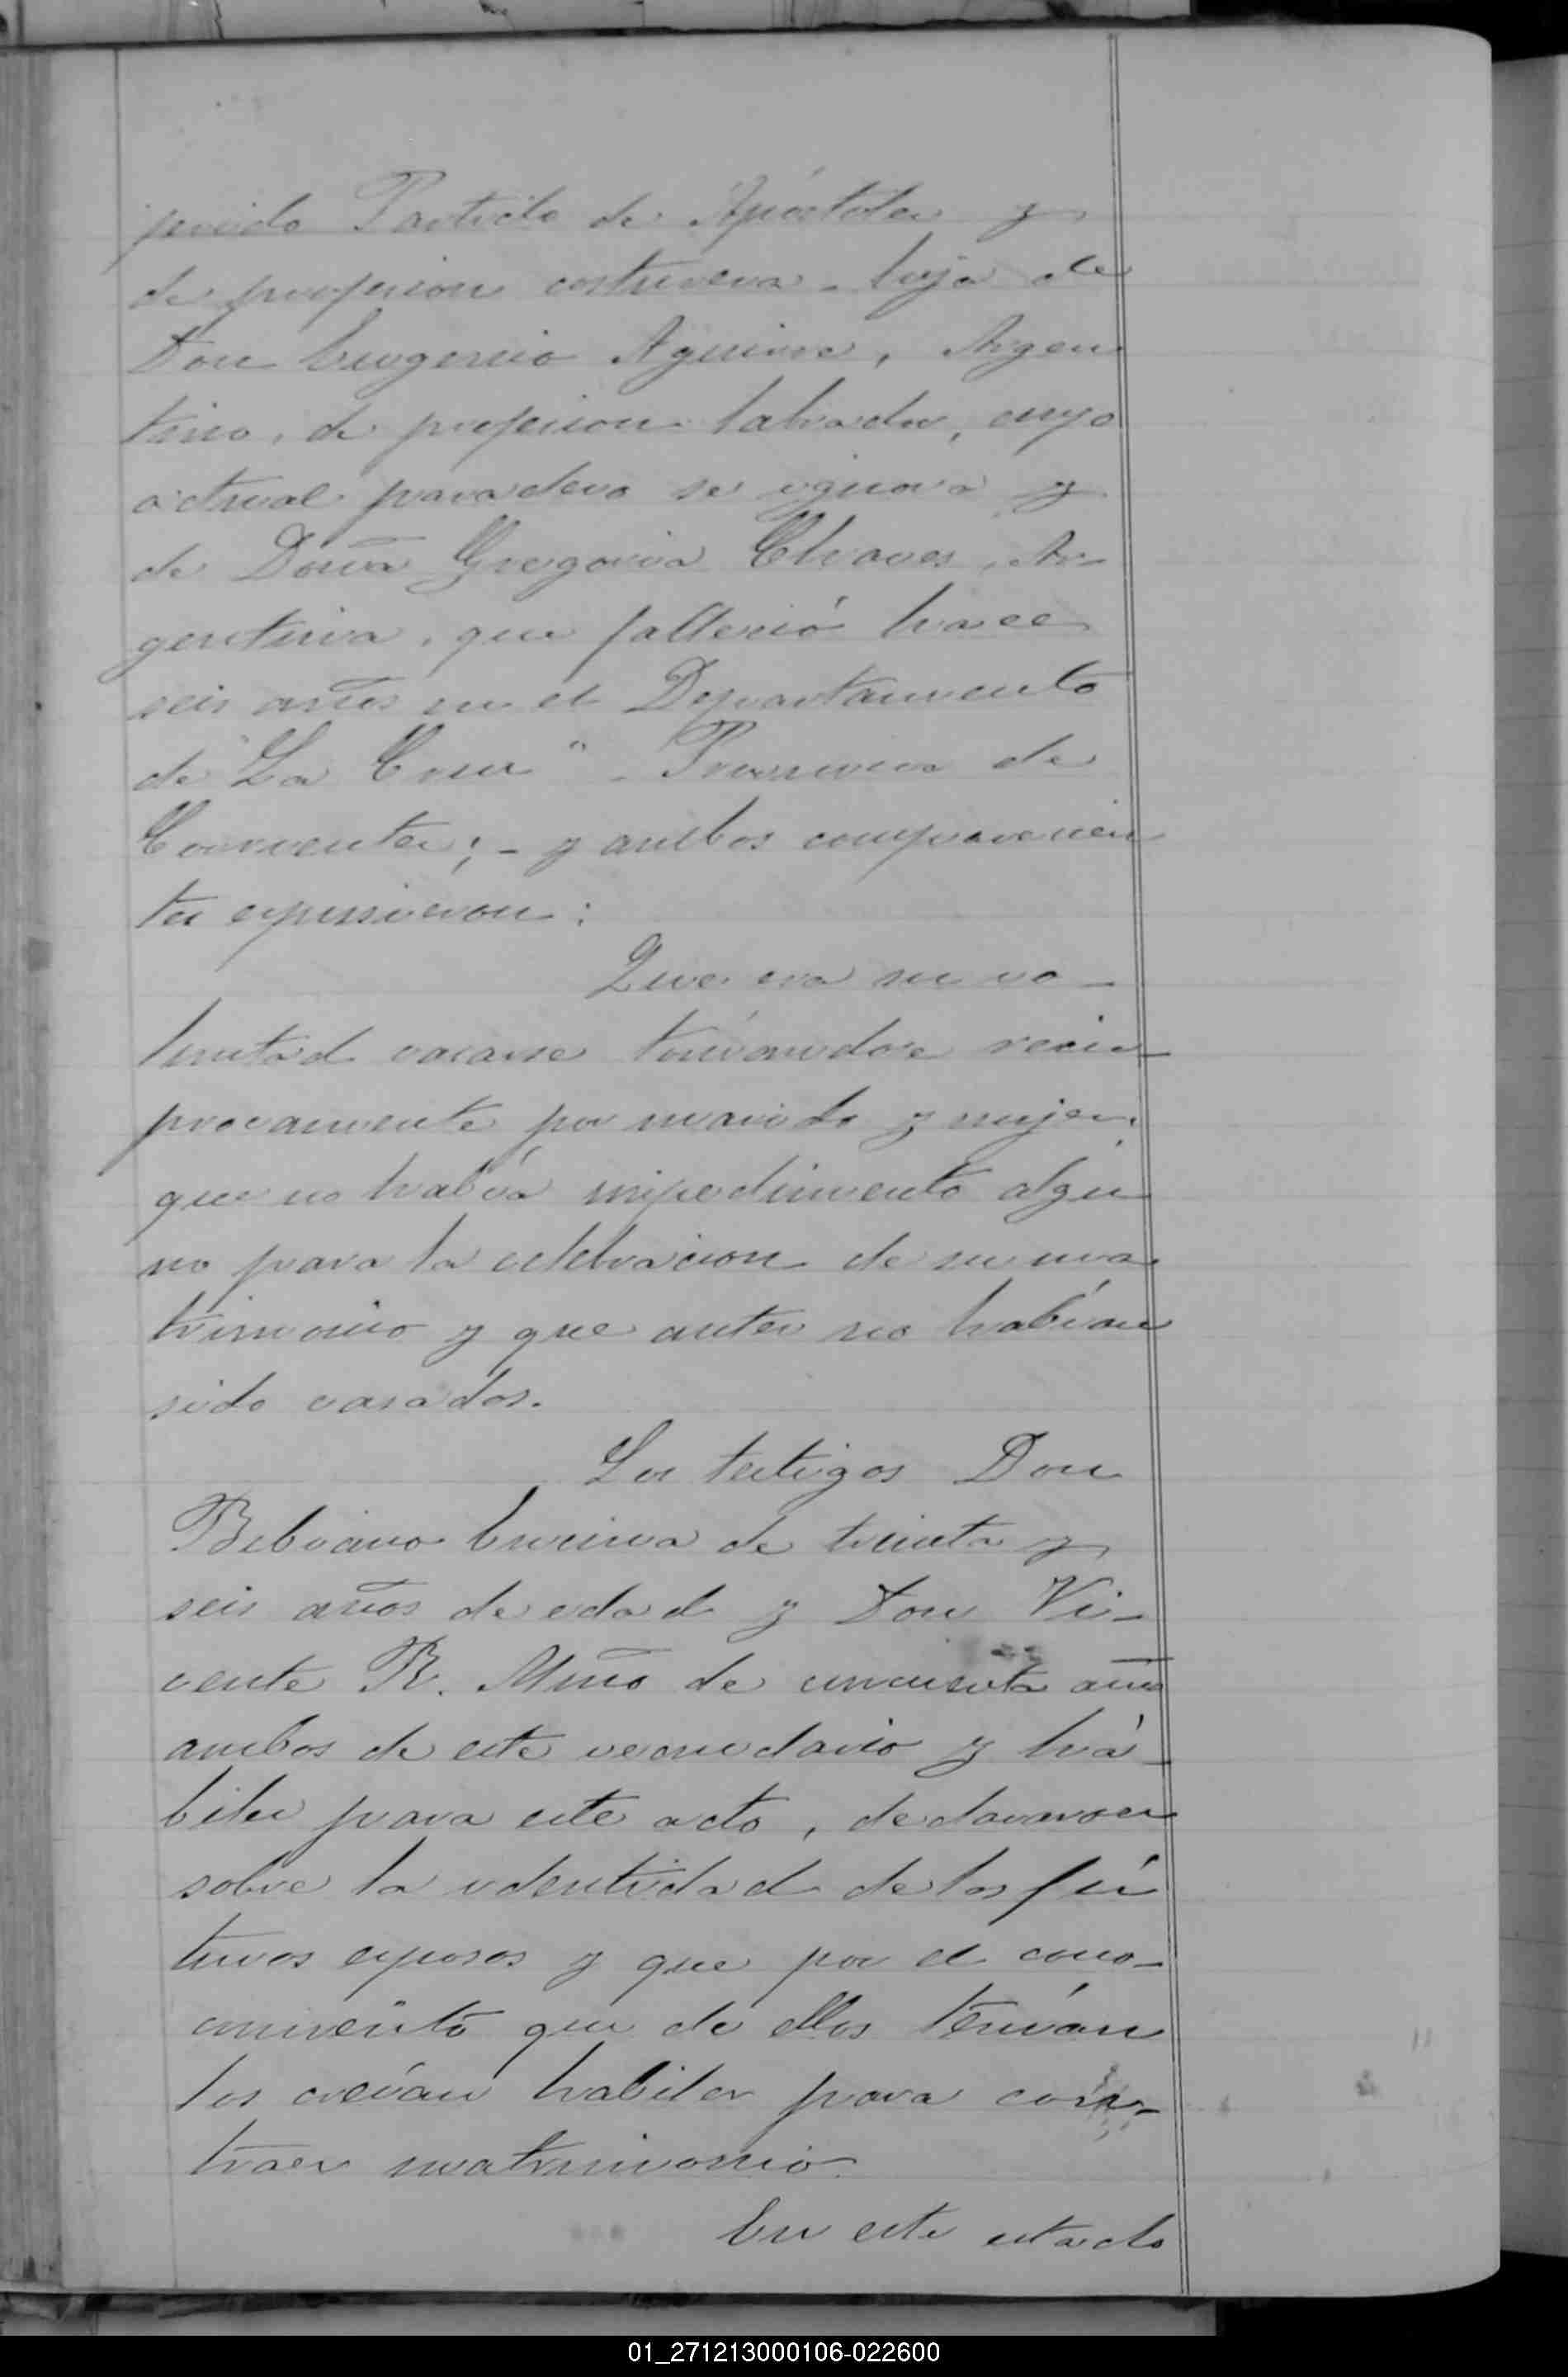 Partido de Apóstoles y
de profesion costurera - hija de
Don Eugenio Aguirre, Argen
tino, de profesion labrador, cuyo
actual paradero se ignora y
de Doña Gregoria Chaves, Ar-
gentina, que falleció hace
seis años en el Departamento
de "La Cruz" - Provincia de
Corrientes; - y ambos comparecien
tes expusieron:
Que era su vo-
luntad casarse tomándose reci-
procamente por marido y mujer.
que no había impedimento algu
no para la celebracion de su ma
trimonio y que antes no habían
sido casados.
Los testigos Don
Bibiano de treinta y
seis años de edad y Don Vi-
cente R. de cincuenta años
ambos de este vecindario y há-
biles para este acto, declararon
sobre la identidad de los fú
turos esposos y que por el cono-
cimiento que de ellos tenían
los creían habiles para con-
traer matrimonio.
En este estado
01_271213000106-022600